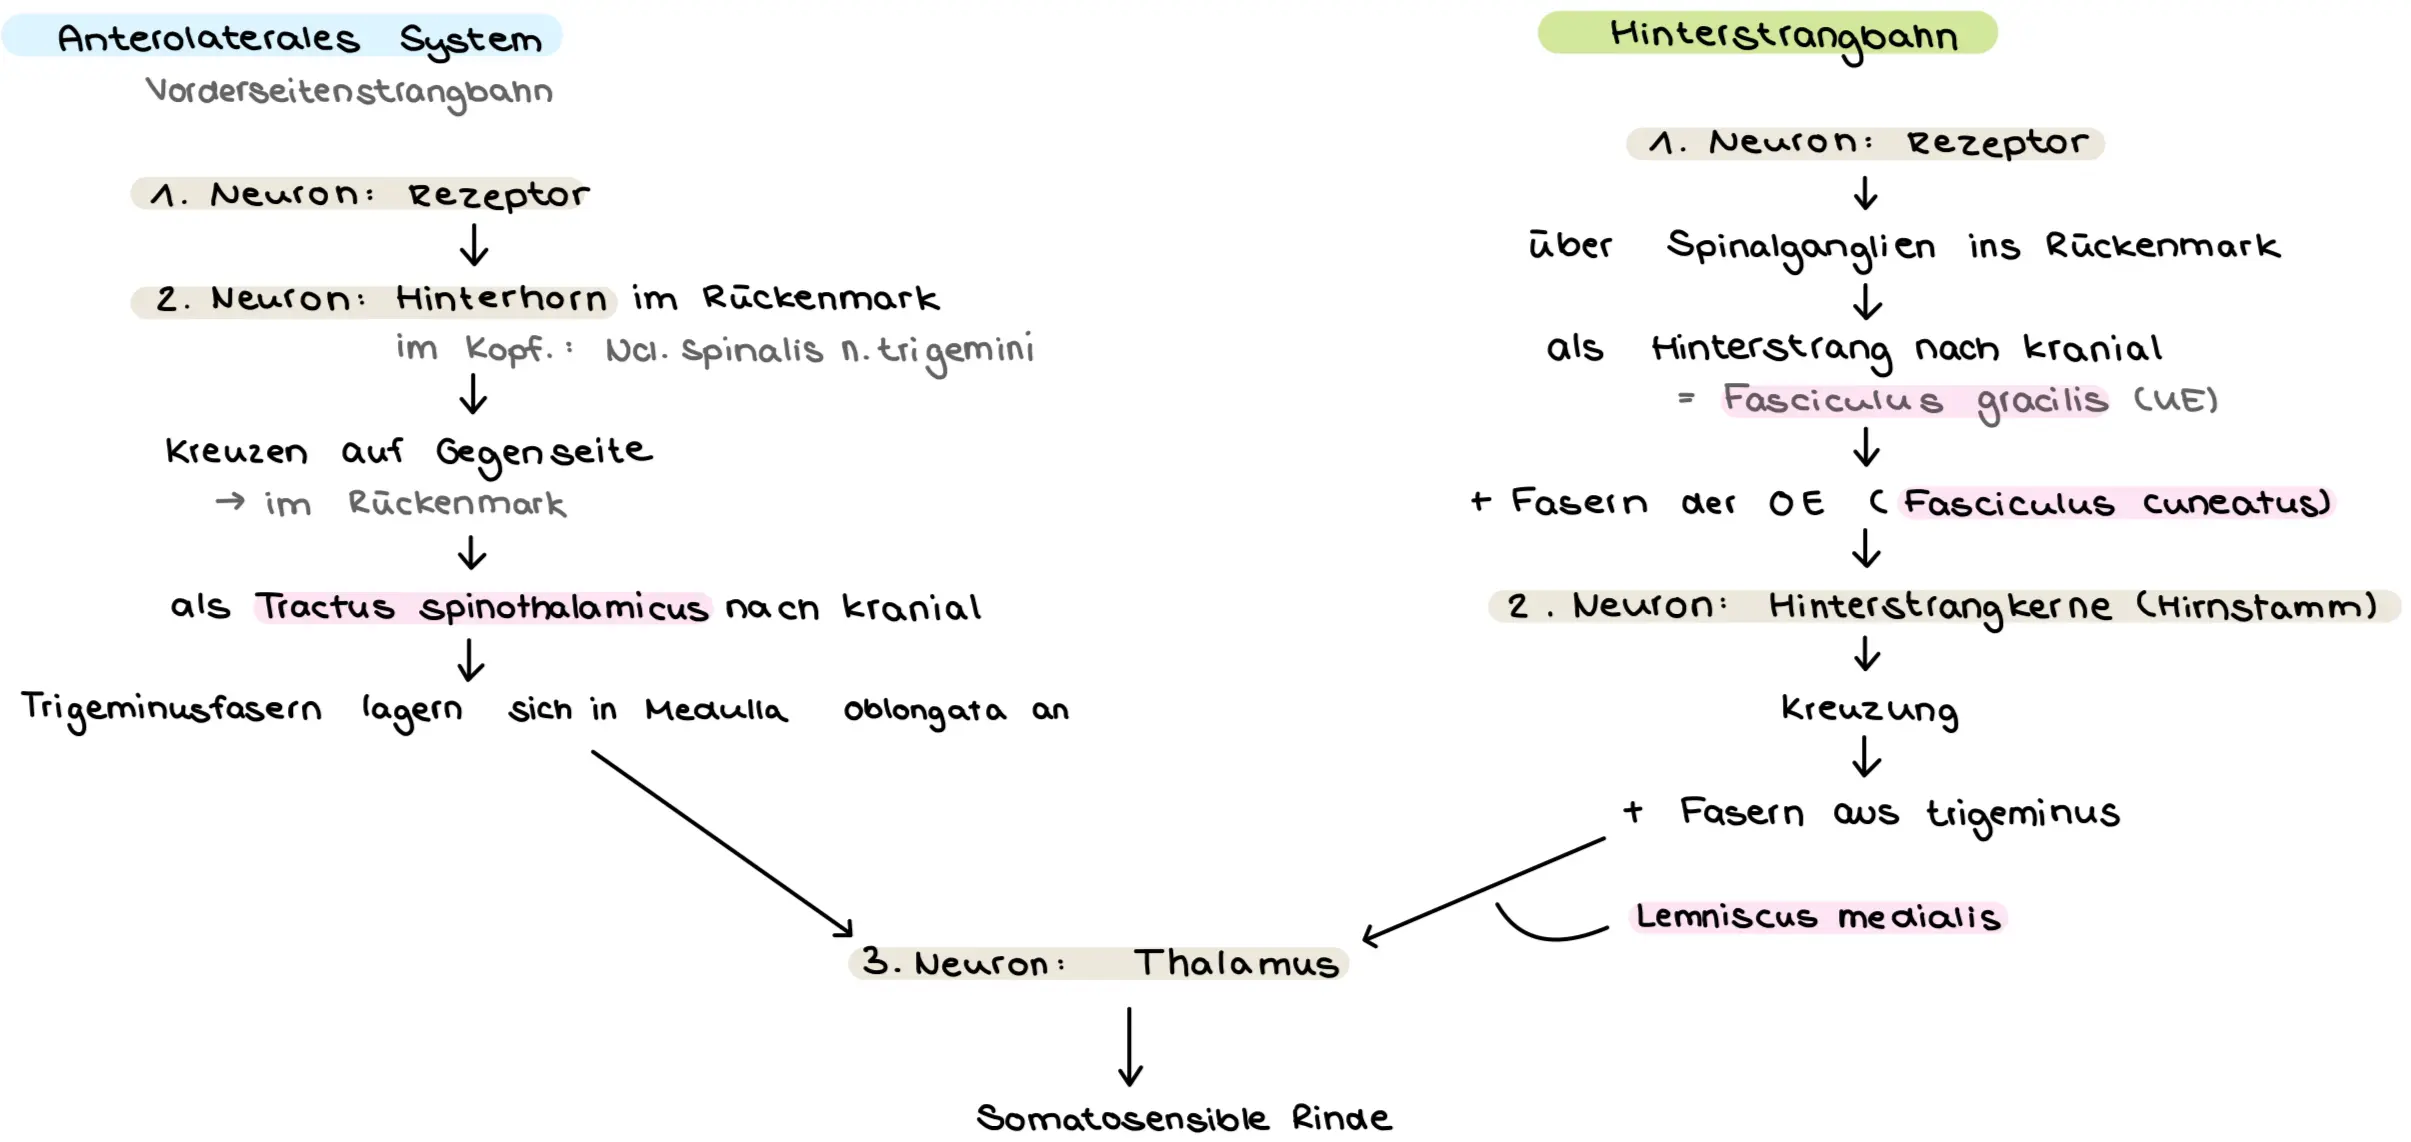 Anterolaterales System
Vorderseitenstrangbahn
1. Neuron: Rezeptor
↓
2. Neuron: Hinterhorn im Rückenmark
im Kopf.: Ncl. spinalis n. trigemini
↓
Kreuzen auf Gegenseite
→ im Rückenmark
↓
als Tractus spinothalamicus nach kranial
↓
Trigeminusfasern lagern sich in Medulla oblongata an
Hinterstrangbahn
1. Neuron: Rezeptor
↓
über Spinalganglien ins Rückenmark
↓
als Hinterstrang nach kranial
= Fasciculus gracilis (UE)
↓
+ Fasern der OE (Fasciculus cuneatus)
↓
2. Neuron: Hinterstrangkerne (Hirnstamm)
↓
Kreuzung
↓
+ Fasern aus trigeminus
Lemniscus medialis
3. Neuron: Thalamus
↓
Somatosensible Rinde